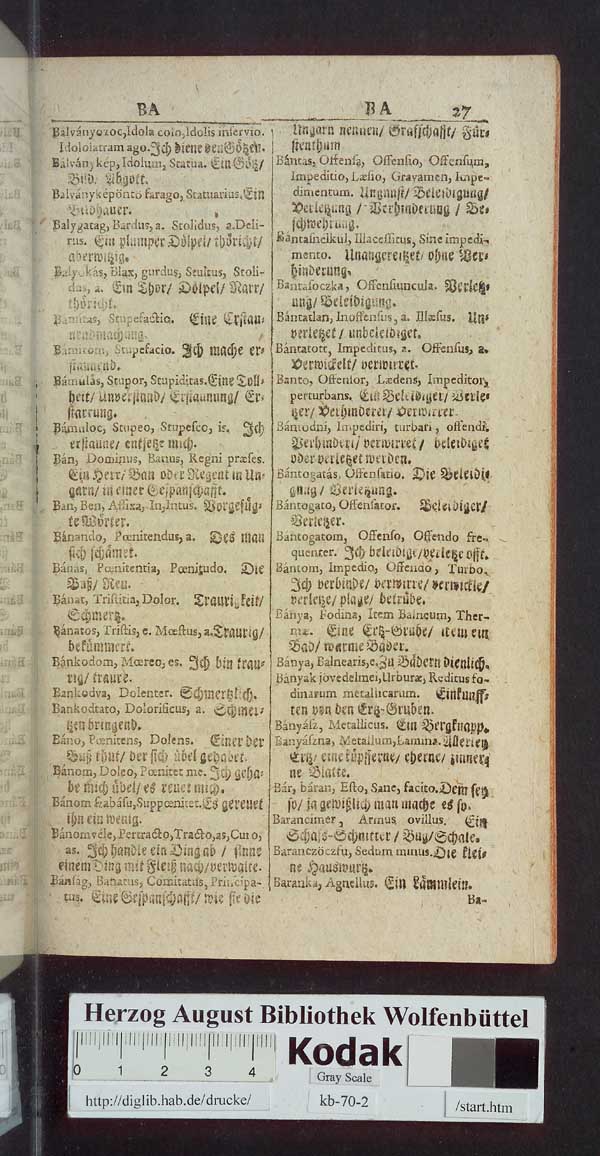 BA
Bálványozoc, Idola colo, Idolis inservio.
Idololatram ago. Ich diene den Götzen.
Bálvány kép, Idolum, Statua. Ein Götz/
Bild. Abgott.
Bálványképöntö farago, Statuarius. Ein
Bildhauer.
Balygatag, Bardus, a. Stolidus, a. Deli-
rus. Ein plumper Dölpel/ thöricht/
aberwitzig.
Balyokás, Blax, gurdus, Stultus, Stoli-
dus, a. Ein Thor/ Dölpel/ Narr/
thöricht.
Bámitas, Stupefactio. Eine Erstau-
nendmachung.
Bámitom, Stupefacio. Ich mache er-
staunend.
Bámulás, Stupor, Stupiditas. Eine Toll-
heit/ Unverstand/ Erstaunung/ Er-
starrung.
Bámuloc, Stupeo, Stupesco, is. Ich
erstaune/ entsetze mich.
Bán, Dominus, Banus, Regni præses.
Ein Herr/ Ban oder Regent in Un-
garn/ in einer Gespanschafft.
Ban, Ben, Affixa, In, Intus. Vorgefüg-
te Wörter.
Bánando, Pœnitendus, a. Des man
sich schämet.
Bánás, Pœnitentia, Pœnitudo. Die
Buß/ Reu.
Bánat, Tristitia, Dolor. Traurigkeit/
Schmertz.
Bánatos, Tristis, e. Mœstus, a. Traurig/
bekümmert.
Bánkodom, Mœreo, es. Ich bin trau-
rig/ traure.
Bankodva, Dolenter. Schmertzlich.
Bankodtato, Dolorificus, a. Schmer-
tzen bringend.
Báno, Pœnitens, Dolens. Einer der
Buß thut/ der sich übel gehabet.
Bánom, Doleo, Pœnitet me. Ich geha-
be mich übel/ es reuet mich.
Bánom szabásu, Suppœnitet. Es gereuet
ihn ein wenig.
Bánomvéle, Pertracto, Tracto, as, Curo,
as. Ich handle ein Ding ab/ sinne
einem Ding mit Fleiß nach/ verwalte.
Bánság, Banatus, Comitatus, Principa-
tus. Eine Gespanschafft/ wie sie die
BA 27
Ungarn nennen/ Grafschafft/ Für-
stenthum
Bántas, Offensa, Offensio, Offensum,
Impeditio, Læsio, Gravamen, Impe-
dimentum. Ungunst/ Beleidigung/
Verletzung/ Verhinderung/ Be-
schwehrung.
Bántasnélkul, Illacessitus, Sine impedi-
mento. Unangereitzet/ ohne Ver-
hinderung.
Bantasoczka, Offensiuncula. Verletz-
ung/ Beleidigung.
Bántatlan, Inoffensus, a. Illæsus. Un-
verletzet/ unbeleidiget.
Bántatott, Impeditus, a. Offensus, a.
Verwickelt/ verwirret.
Banto, Offensor, Lædens, Impeditor,
perturbans. Ein Beleidiger/ Verle-
tzer/ Verhinderer/ Verwirrer.
Bántodni, Impediri, turbari, offendi.
Verhindert/ verwirret/ beleidiget
oder verletzet werden.
Bántogatás, Offensatio. Die Beleidi-
gung/ Verletzung.
Bántogato, Offensator. Beleidiger/
Verletzer.
Bántogatom, Offenso, Offendo fre-
quenter. Ich beleidige/ verletze offt.
Bántom, Impedio, Offendo, Turbo.
Ich verbinde/ verwirre/ verwickle/
verletze/ plage/ betrübe.
Bánya, Fodina, Item Balneum, Ther-
mæ. Eine Ertz-Grube/ item ein
Bad/ warme Bäder.
Bánya, Balnearis, e. Zu Bädern dienlich.
Bányak jövedelmei, Urburæ, Reditus fo-
dinarum metallicarum. Einkunff-
ten von den Ertz-Gruben.
Bányász, Metallicus. Ein Bergknapp.
Banyászna, Metallum, Lamna. Allerley
Ertz/ eine küpfferne/ eherne/ zinner-
ne Blatte.
Bár, báran, Esto, Sane, facito. Dem sey
so/ ja gewißlich man mache es so.
Barancimer, Armus ovillus. Ein
Schafs-Schnitter/ Bug/ Schale.
Baranczöczfu, Sedum minus. Die klei-
ne Hauswurtz.
Baranka, Agnellus. Ein Lämmlein.
Ba-
Herzog August Bibliothek Wolfenbüttel
0 1 2 3 4
Kodak
Gray Scale
http://diglib.hab.de/drucke/ kb-70-2 /start.htm